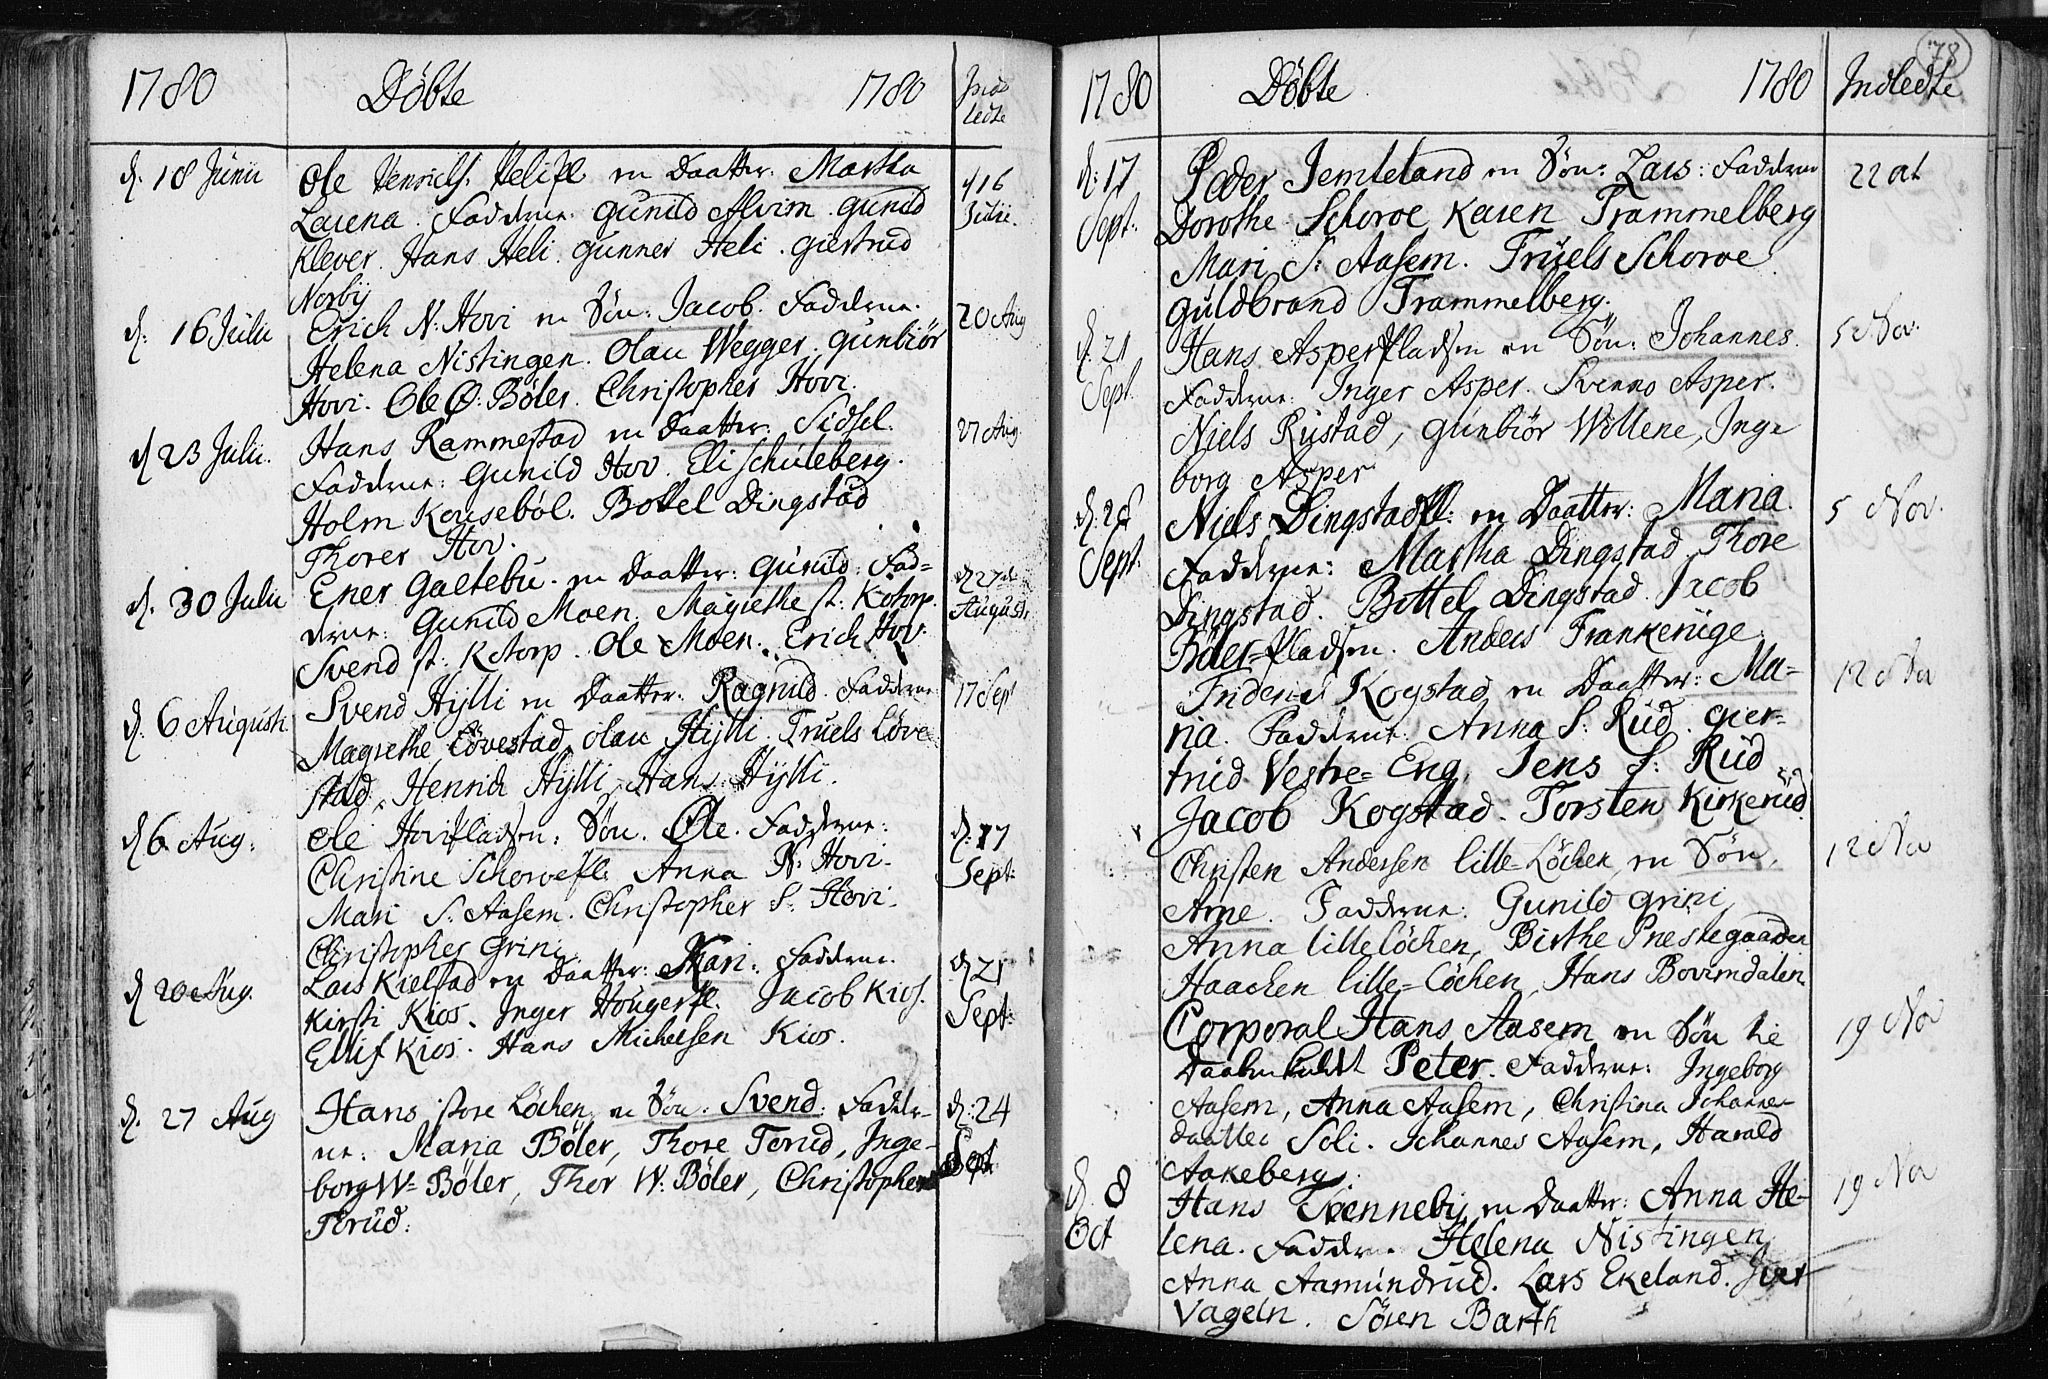 1780 Döbte 1780 Indledte
d. 18 Junii Ole Henrichs. en Daatter. Martha d 16
Larena. Fadderne. Gunild Alvim. Gunild Julii.
Klever. Hans Heli. Gunner Heli. Giertrud
Norbÿ
d. 16 Julii Erich N: Hovi en Sön: Jacob. Fadderne. 20 Aug
Helena Nistingen. Olau Wegger. Gunbiör
Hovi. Ole Ø. Böler. Christopher Hovi.
d 23 Julii. Hans Rammestad en Daatter. Sidsel. 27 Aug.
Fadderne: Gunild Hov. Eli Schuleberg.
Holm Kouseböl. Bottel Dingstad
Thorer Hov.
d. 30 Julii Ener Galtebu. en Daatter: Gunild. Fad= d 27de
derne: Gunild Moen. Magrethe st: Kétorp. Augusti
Svend st: Ketorp. Ole Moen. Erich Hov.
d. 6 Augusti. Svend Hÿlli en Daatter: Ragnild. Fadderne 17 Sept
Magrethe Lövestad, Olau Hÿlli. Truels Löve
stad, Henrich Hÿlli, Hans Hÿlli.
d 6 Aug: Ole Hovipladsen: Sön. Ole. Fadderne: d: 17
Christine Schorvepl. Anna N: Hovi. Sept:
Mari S. Aasem. Christopher S: Hovi.
Christopher Grini
d 20 Aug. Lars Kielstad en Daatter: Mari. Fadderne. d 21
Kirsti Kios. Inger Hougerpl. Jacob Kios. Sept:
Ellif Kios. Hans Michelsen Kios.
d. 27 Aug Hans store Löchen en Sön. Svend. Fadder= d: 24
ne: Maria Böler, Thore Torud, Inge= Sept
borg W= Böler, Thor W. Böler, Christopher
Torud.
78
1780 Döbte 1780 Indledte
d: 17 Peder Jemteland en Sön: Lars: Fadderne 22 Oct
Sept: Dorothe Schorve Karen Trammelberg
Mari S: Aasem. Truels Schorve
Guldbrand Trammelberg.
d. 21 Hans Asperpladsen en Sön: Johannes. 5 Nov.
Sept. Fadderne: Inger Asper. Svenno Asper.
Niels Rustad, Gunbiör Wollene, Inge
borg Asper
Niels Dingstadpl: en Daatter: Maria. 5 Nov.
Sept. Fadderne: Martha Dingstad Thore
Dingstad. Bottel Dingstad. Jacob
Böler=pladsen. Anders Frankerüge.
Friderich Kogstad en Daatter: Ma= 12 Nov
ria. Fadderne. Anna S: Rud. Gier=
trud Vestre= Eng. Jens S: Rud
Jacob Kogstad. Torsten Kirkerud.
Christen Andersen lille=Löchen en Sön. 12 Nov
Arne. Fadderne: Gunild Grini
Anna lille löchen, Birthe Prestegaarden
Haachen lille=Löchen, Hans Bovimdalen
Corporal Hans Aasem en Sön 19 Nov
Peter. Fadderne: Ingeborg
Aasem, Anna Aasem, Christina Johannes
daatter Soli. Johannes Aasem, Harald
Aakeberg.
d. 8 Hans Svennebÿ en Daatter: Anna He= 19 Nov
Oct lena. Fadderne Helena Nistingen
Anna Aamundrud. Lars Ekeland. Iver
Vageln. Sören Barth